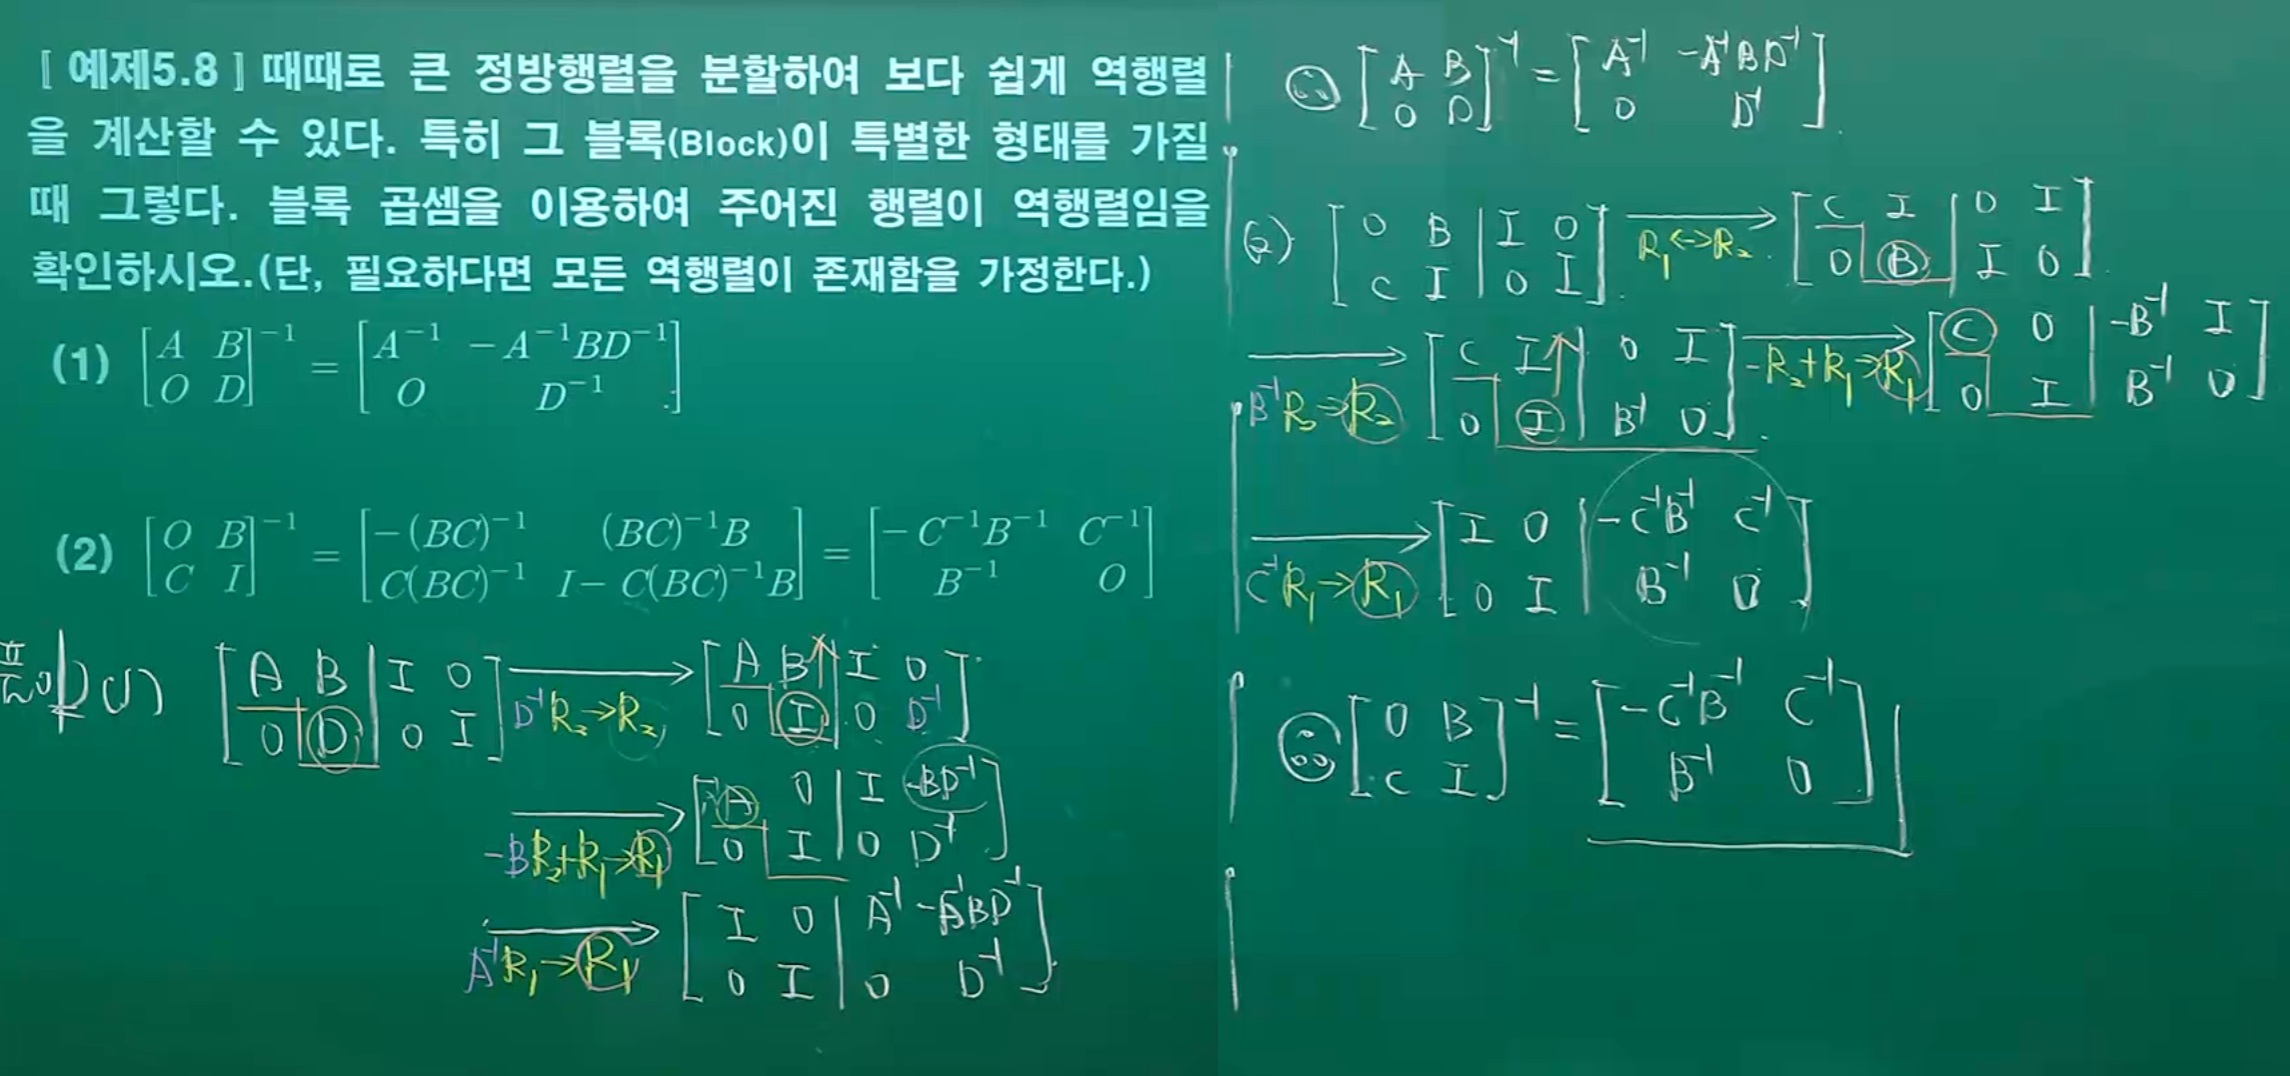 [예제5.8] 때때로 큰 정방행렬을 분할하여 보다 쉽게 역행렬
을 계산할 수 있다. 특히 그 블록(Block)이 특별한 형태를 가질
때 그렇다. 블록 곱셈을 이용하여 주어진 행렬이 역행렬임을
확인하시오.(단, 필요하다면 모든 역행렬이 존재함을 가정한다.)
(1) [A B; O D]⁻¹ = [A⁻¹ -A⁻¹BD⁻¹; O D⁻¹]
(2) [O B; C I]⁻¹ = [-(BC)⁻¹ (BC)⁻¹B; C(BC)⁻¹ I-C(BC)⁻¹B] = [-C⁻¹B⁻¹ C⁻¹; B⁻¹ O]
풀이) (1) [A B | I 0; 0 D | 0 I] D⁻¹R₂→R₂ [A B | I 0; 0 I | 0 D⁻¹]
-BR₂+R₁→R₁ [A 0 | I -BD⁻¹; 0 I | 0 D⁻¹]
A⁻¹R₁→R₁ [I 0 | A⁻¹ -A⁻¹BD⁻¹; 0 I | 0 D⁻¹]
∴ [A B; 0 D]⁻¹ = [A⁻¹ -A⁻¹BD⁻¹; 0 D⁻¹]
(2) [0 B | I 0; C I | 0 I] R₁↔R₂ [C I | 0 I; 0 B | I 0]
B⁻¹R₂→R₂ [C I | 0 I; 0 I | B⁻¹ 0] -R₂+R₁→R₁ [C 0 | -B⁻¹ I; 0 I | B⁻¹ 0]
C⁻¹R₁→R₁ [I 0 | -C⁻¹B⁻¹ C⁻¹; 0 I | B⁻¹ 0]
∴ [0 B; C I]⁻¹ = [-C⁻¹B⁻¹ C⁻¹; B⁻¹ 0]